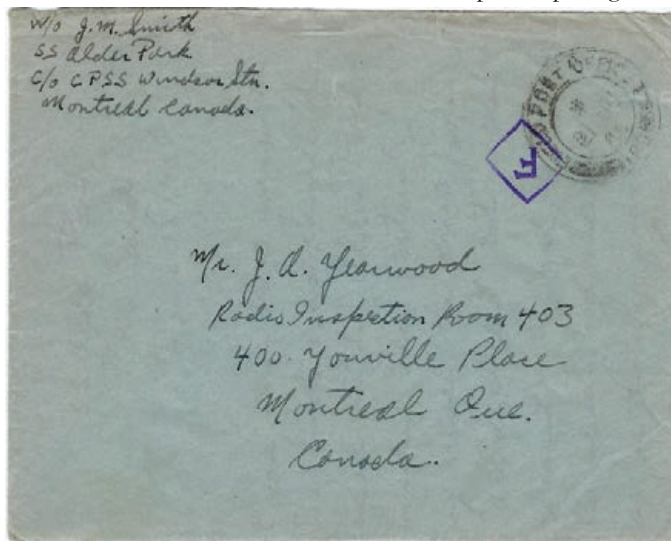 W/o J.M. Smith
SS Alder Park
C/o CPSS Windsor Stn.
Montreal Canada.
POST OFFICE
F
Mr. J. A. Yearwood
Radio Inspection Room 403
400 Youville Place
Montreal Que.
Canada.